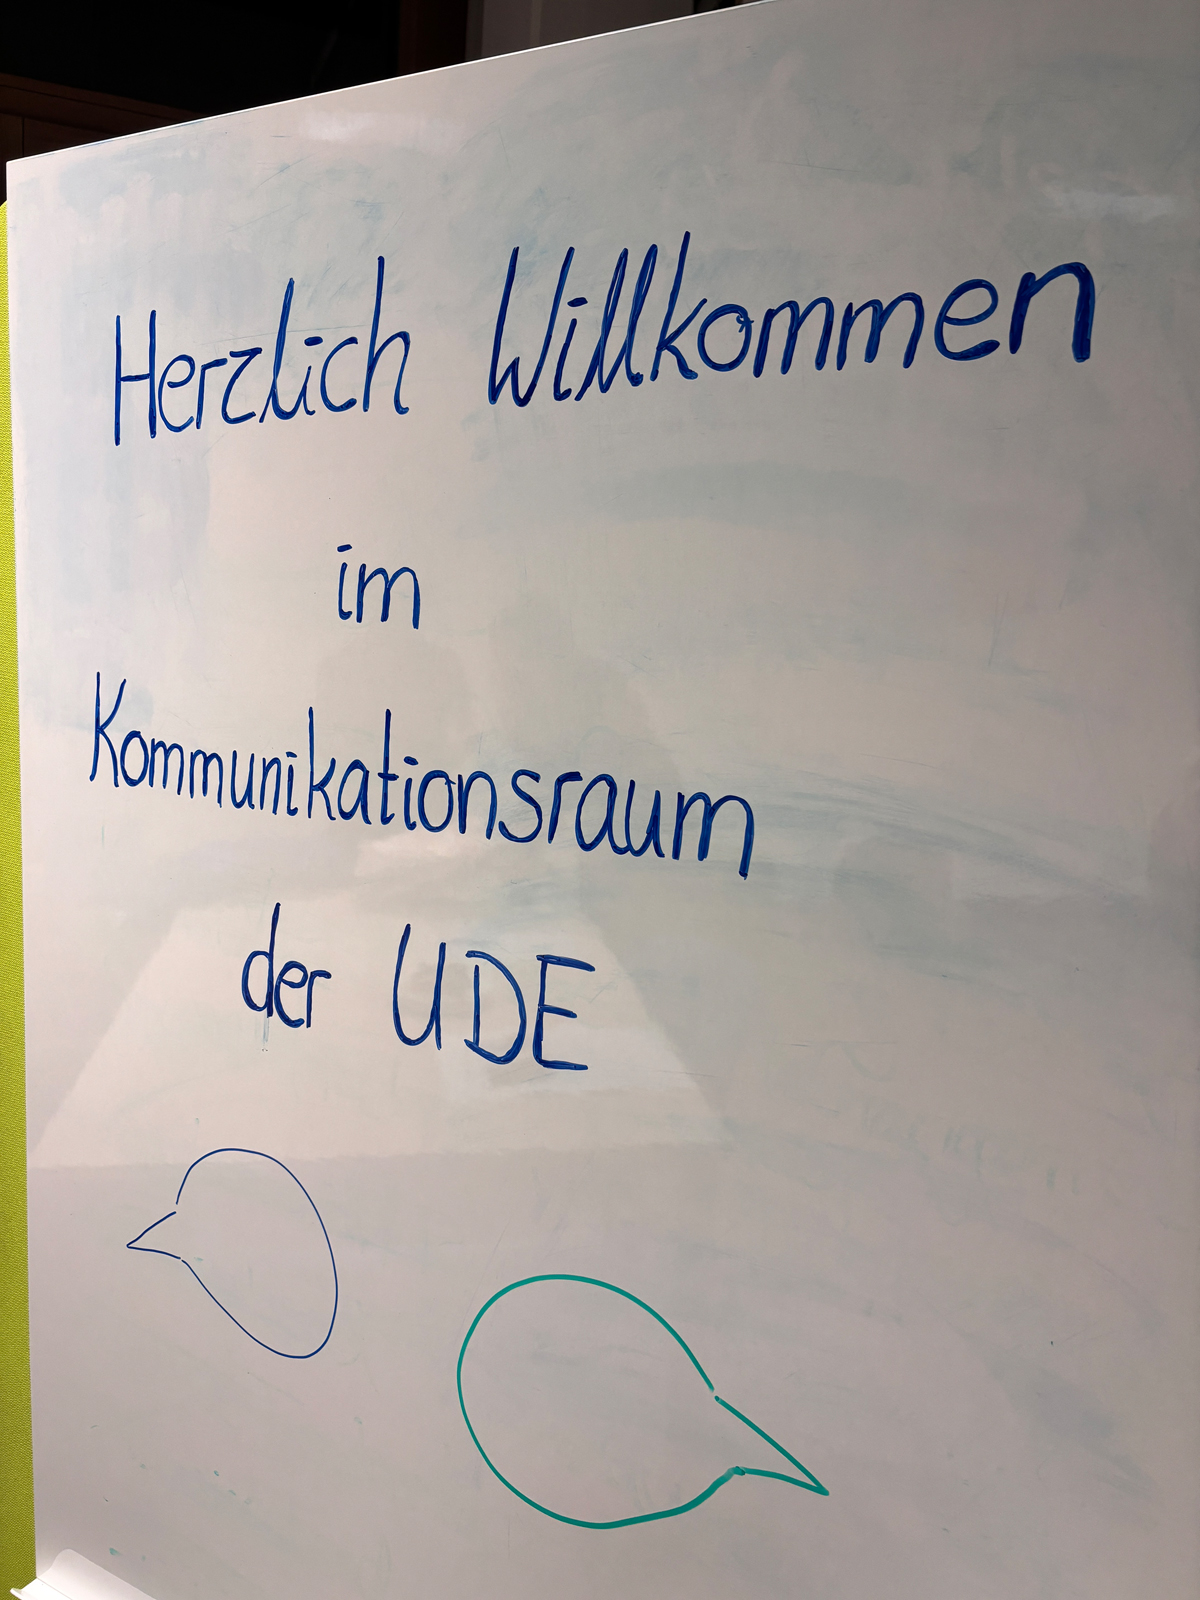 Herzlich Willkommen
im
Kommunikationsraum
der UDE